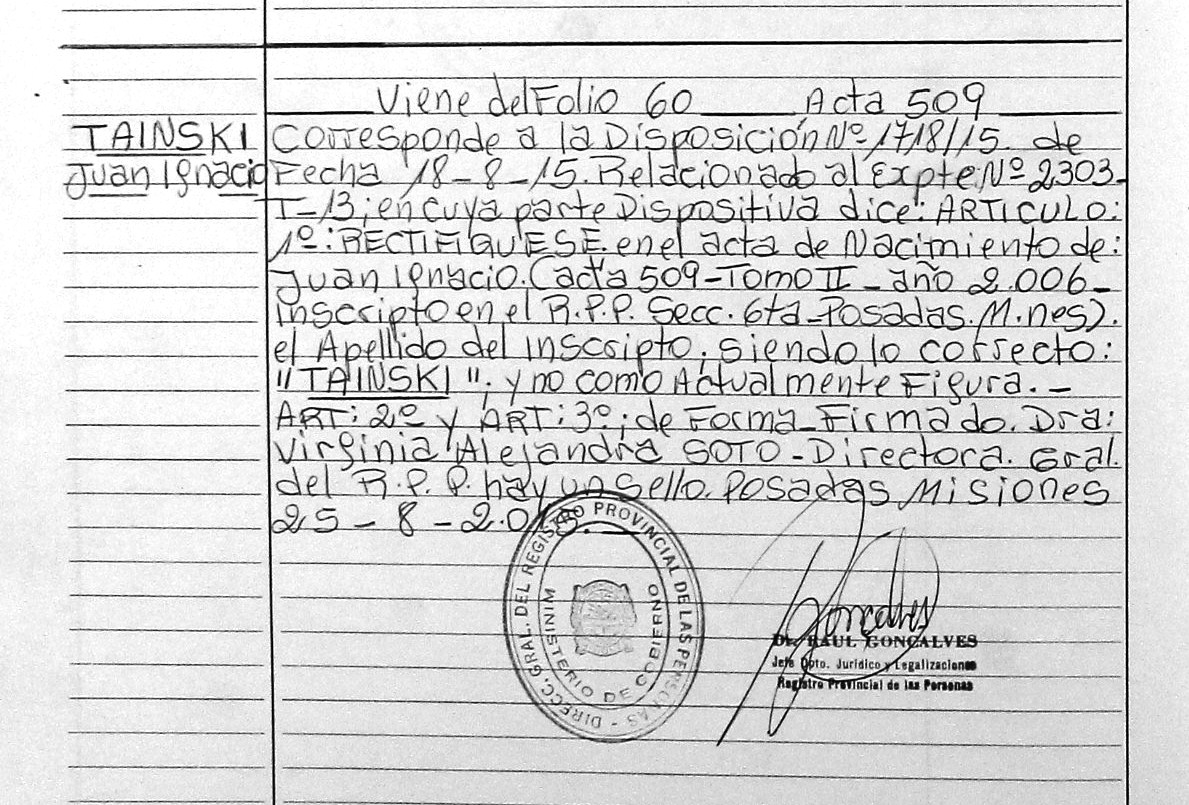 Viene del Folio 60 Acta 509
TAINSKI
Juan Ignacio
Corresponde a la Disposición Nº 1718/15. de
Fecha 18-8-15. Relacionado al Expte. Nº 2303-
T-13; en cuya parte Dispositiva dice: ARTICULO:
1º: RECTIFIQUESE. en el acta de Nacimiento de:
Juan Ignacio. (acta 509-Tomo II - año 2.006-
inscripto en el R.P.P. Secc. 6ta-Posadas. M.nes).
el Apellido del inscripto, siendo lo correcto:
"TAINSKI"; y no como Actualmente Figura.-
ART: 2º y ART: 3º; de Forma-Firmado. Dra:
Virginia Alejandra SOTO-Directora. Gral.
del R.P.P. hay un sello. Posadas Misiones
25-8-2.015.-
DIRECC. GRAL. DEL REGISTRO PROVINCIAL DE LAS PERSONAS -
MINISTERIO DE GOBIERNO
Goncalves
Dr. RAUL GONCALVES
Jefe Dpto. Jurídico y Legalizaciones
Registro Provincial de las Personas